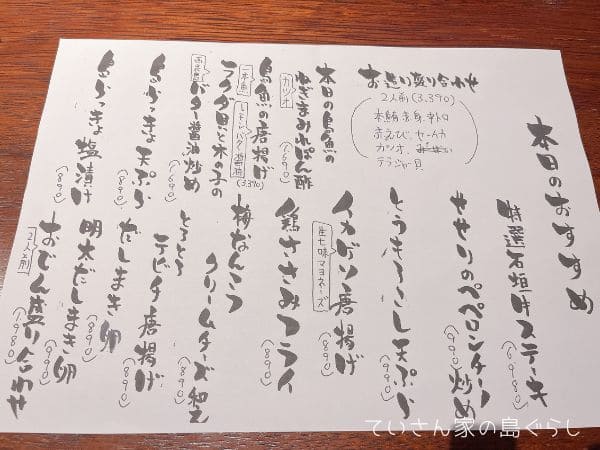 本日のおすすめ
お造り盛り合わせ
2人前(3.390)
本鮪赤身.中トロ
赤えび、セーイカ
カツオ、
テラジャー貝
本日の島魚の
ねぎまみれぽん酢
カツオ
(1.690)
島魚の唐揚げ
一本魚
レモンバター醤油
(3.390)
フタ田いと木の子の
バター醤油炒め
(1.690)
島らっきょ天ぷら
(890)
島らっきょ塩漬け
(890)
特選石垣牛ステーキ
(6.980)
せせりのペペロンチーノ炒め
(990)
とうもろこし天ぷら
(890)
イカゲソ唐揚げ
(990)
生七味マヨネーズ
鶏ささみフライ
(890)
梅なんこつ
クリームチーズ和え
(890)
とろとろ
テビチ唐揚げ
(890)
だしまき卵
(890)
明太だしまき卵
(990)
おでん盛り合わせ
2人前
(1.980)
ていさん家の島ぐらし